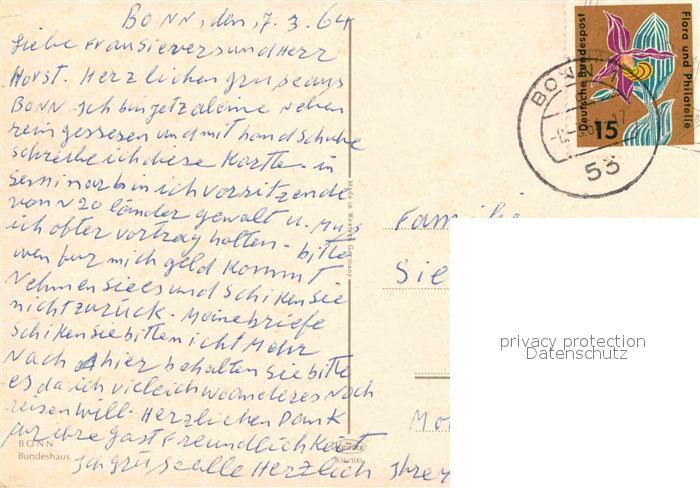 BONN, den, 7. 3. 64
Liebe Frau Sievers und Herr
Horst. Herzlichen gruse aus
BONN. Ich bin jetz aleine Neben
rein gesessen und mit handschuhe
schreibe ich diese Kartte. in
Seminar bin ich vorsitzende
von 20 länder gewalt u. Mus
ich ofter vortrag halten. bitte
wen fur mich geld kommt,
Nehmen sie es und schiken sie
nicht zurück. Meine briefe
schiken sie bitte nicht Mehr
Nach hier behalten sie bitte
es da ich vieleich wo anderes Noch
reisen will. Herzlichen Dank
fur ihre gast Freundlichkeit
Ich grüse alle Herzlich Ihr
BONN
Bundeshaus
Made in Western Germany
Familie
Sie
Mo
Deutsche Bundespost
Flora und Philatelie
15
BONN
53
privacy protection
Datenschutz